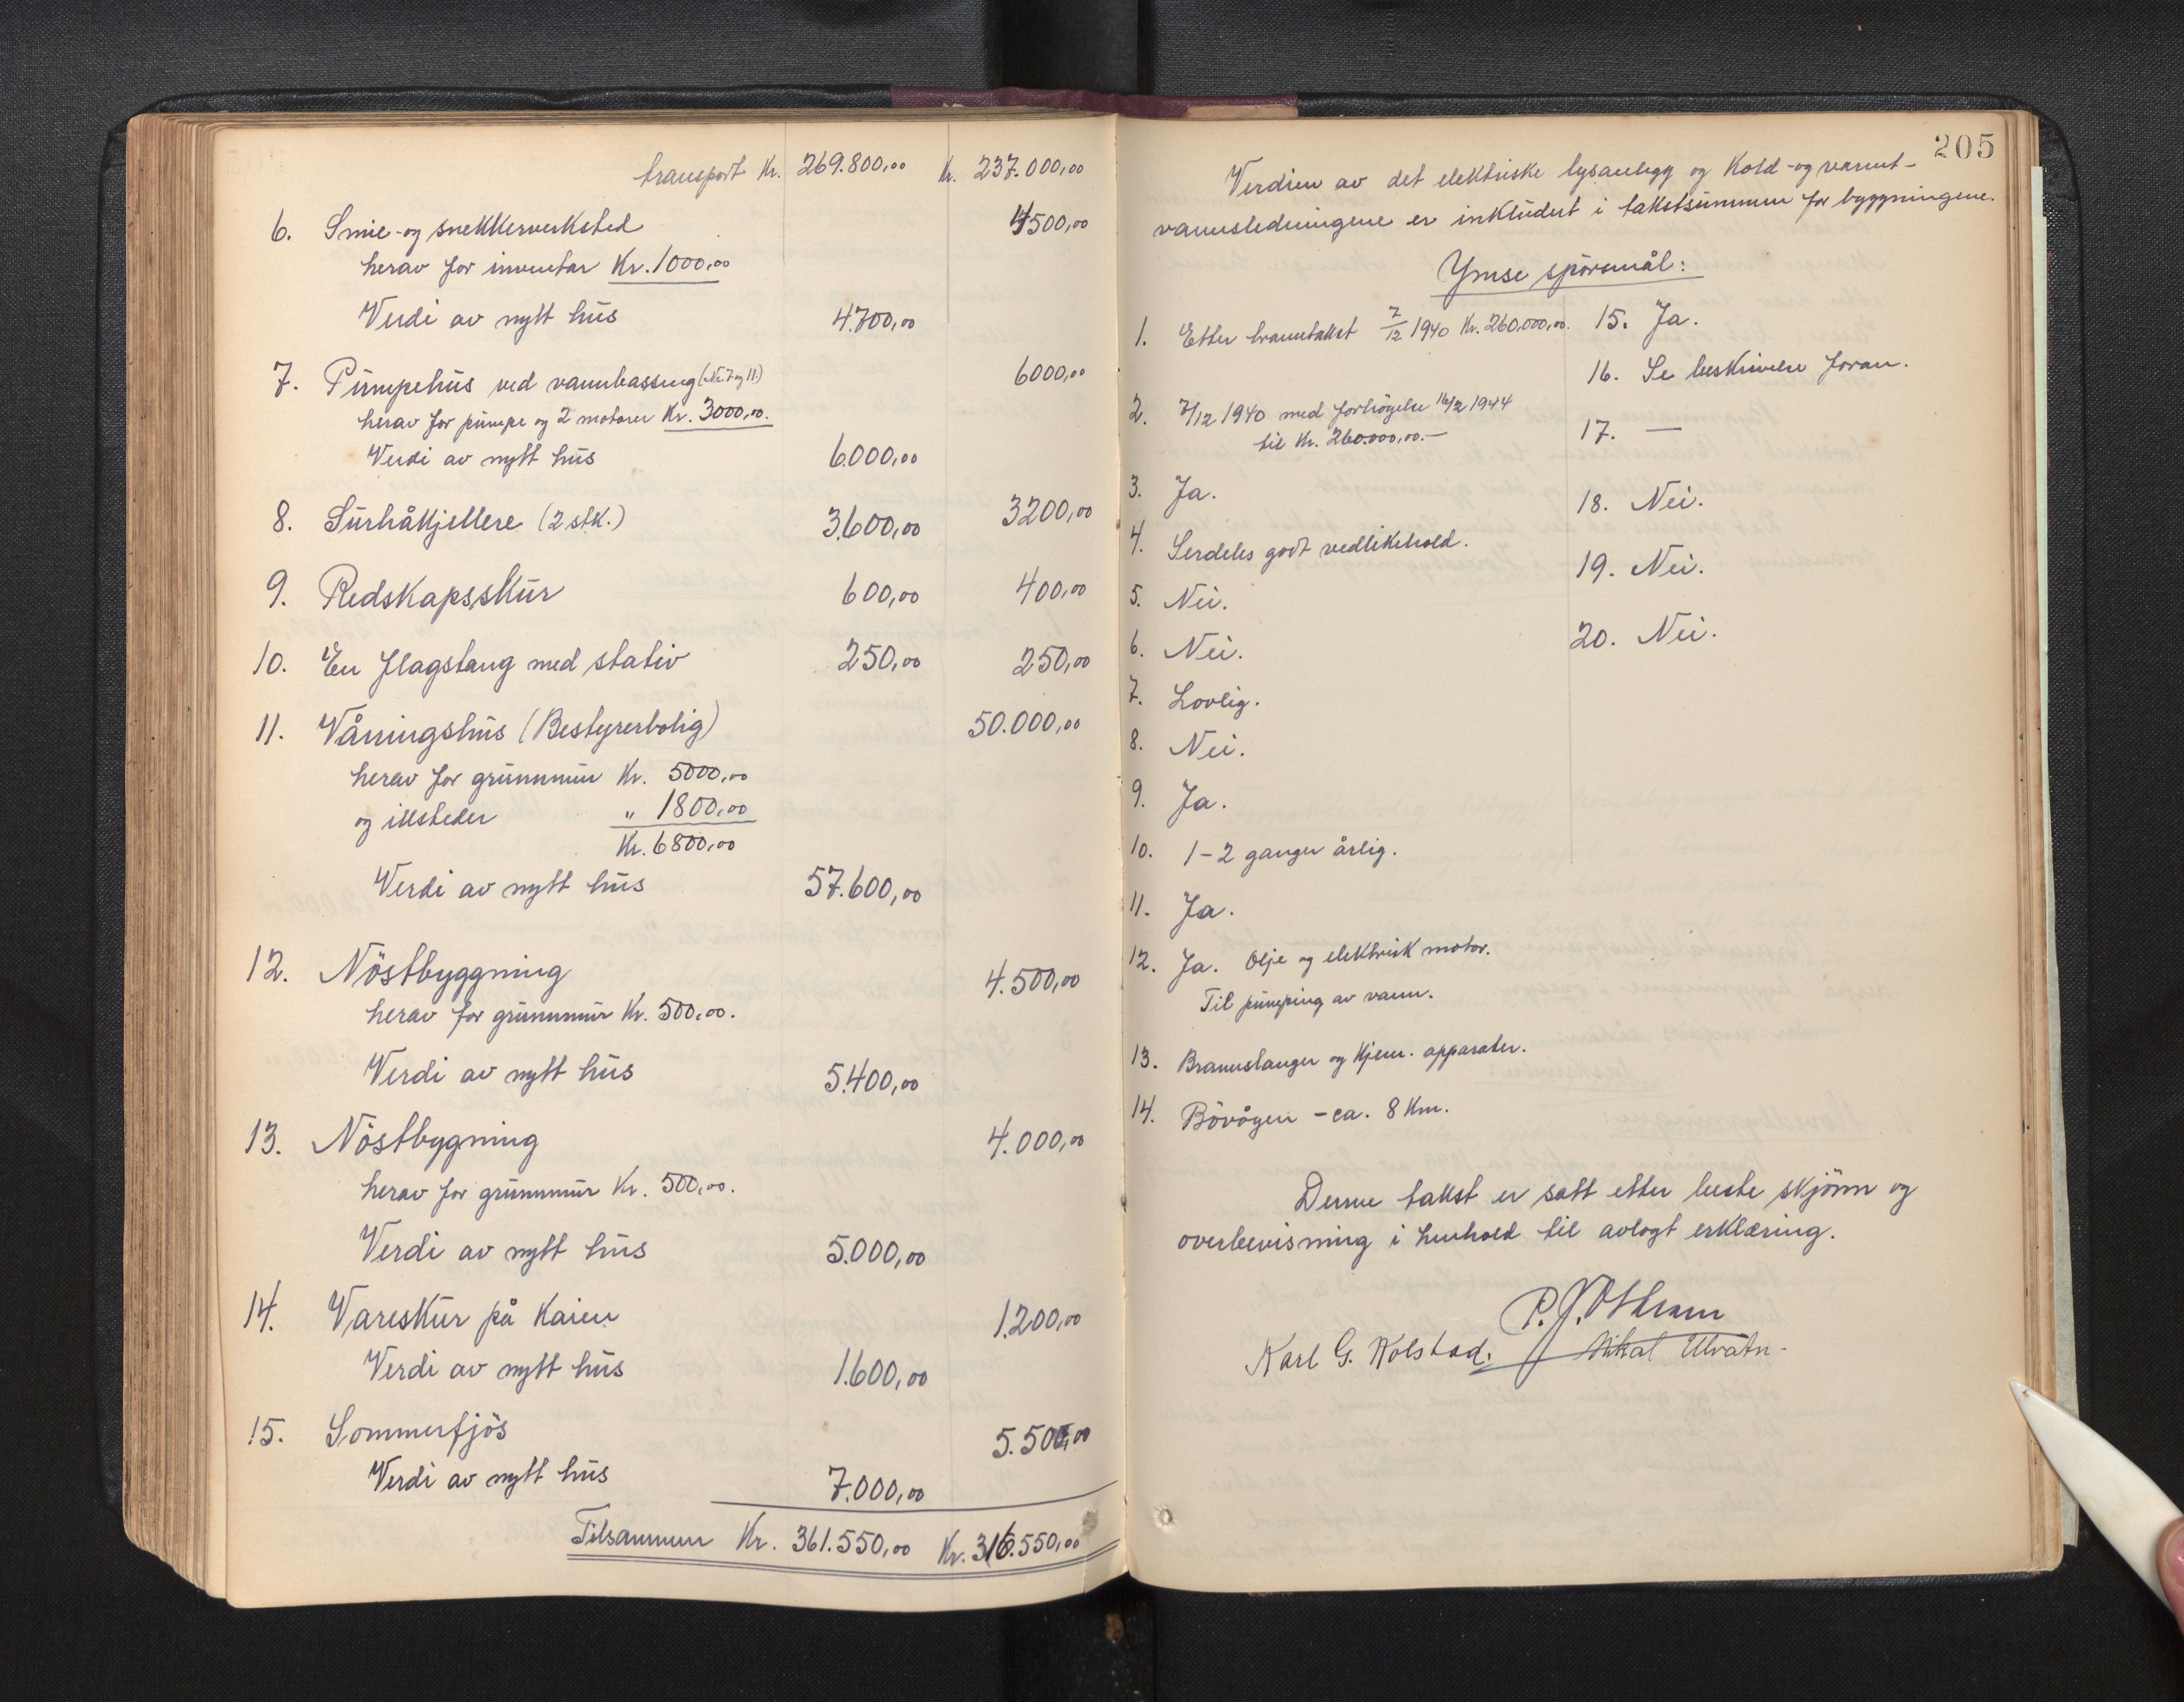 transport Kr. 269.800,00 Kr. 237.000,00
6. Smie- og snekkerverksted 4500,00
herav for inventar Kr. 1000,00
Verdi av nytt hus 4.700,00
7. Pumpehus ved vannbasseng (Nr. 7 og 11.) 6000,00
herav for pumpe og 2 motorer Kr. 3000,00.
Verdi av nytt hus 6.000,00
8. Surhåkjellere (2 stk.) 3.600,00 3200,00
9. Redskapsskur 600,00 400,00
10. En flagstang med stativ 250,00 250,00
11. Våningshus (Bestyrerbolig) 50.000,00
herav for grunnmur Kr. 5000,00
og illsteder " 1800,00
Kr. 6800,00
Verdi av nytt hus 57.600,00
12. Nöstbyggning 4.500,00
herav for grunnmur Kr. 500,00.
Verdi av nytt hus 5.400,00
13. Nöstbygning 4.000,00
herav for grunnmur Kr. 500,00.
Verdi av nytt hus 5.000,00
14. Vareskur på Kaien 1.200,00
Verdi av nytt hus 1.600,00
15. Sommerfjös 5.500,00
Verdi av nytt hus 7.000,00
Tilsammen Kr. 361.550,00 Kr. 316.550,00
205
Verdien av det elektriske lysanlegg og Kold- og varmt-
vannsledningene er inkludert i takstsummen for byggningene.
Ymse spörsmål:
1. Etter branntakst 7/12 1940 Kr. 260.000,00.
2. 7/12 1940 med forhögelse 16/2 1944
til Kr. 260.000,00.-
3. Ja.
4. Serdeles godt vedlikehold.
5. Nei.
6. Nei.
7. Lovlig.
8. Nei.
9. Ja.
10. 1-2 ganger årlig.
11. Ja.
12. Ja. Olje og elektrisk motor.
Til pumping av vann.
13. Brannslanger og Kjem. apparater.
14. Bövågen - ca. 8 Km.
15. Ja.
16. Se beskrivelse foran.
17. —
18. Nei.
19. Nei.
20. Nei.
Denne takst er satt etter beste skjönn og
overbevisning i henhold til avlagt erklæring.
Karl G. Kolstad.